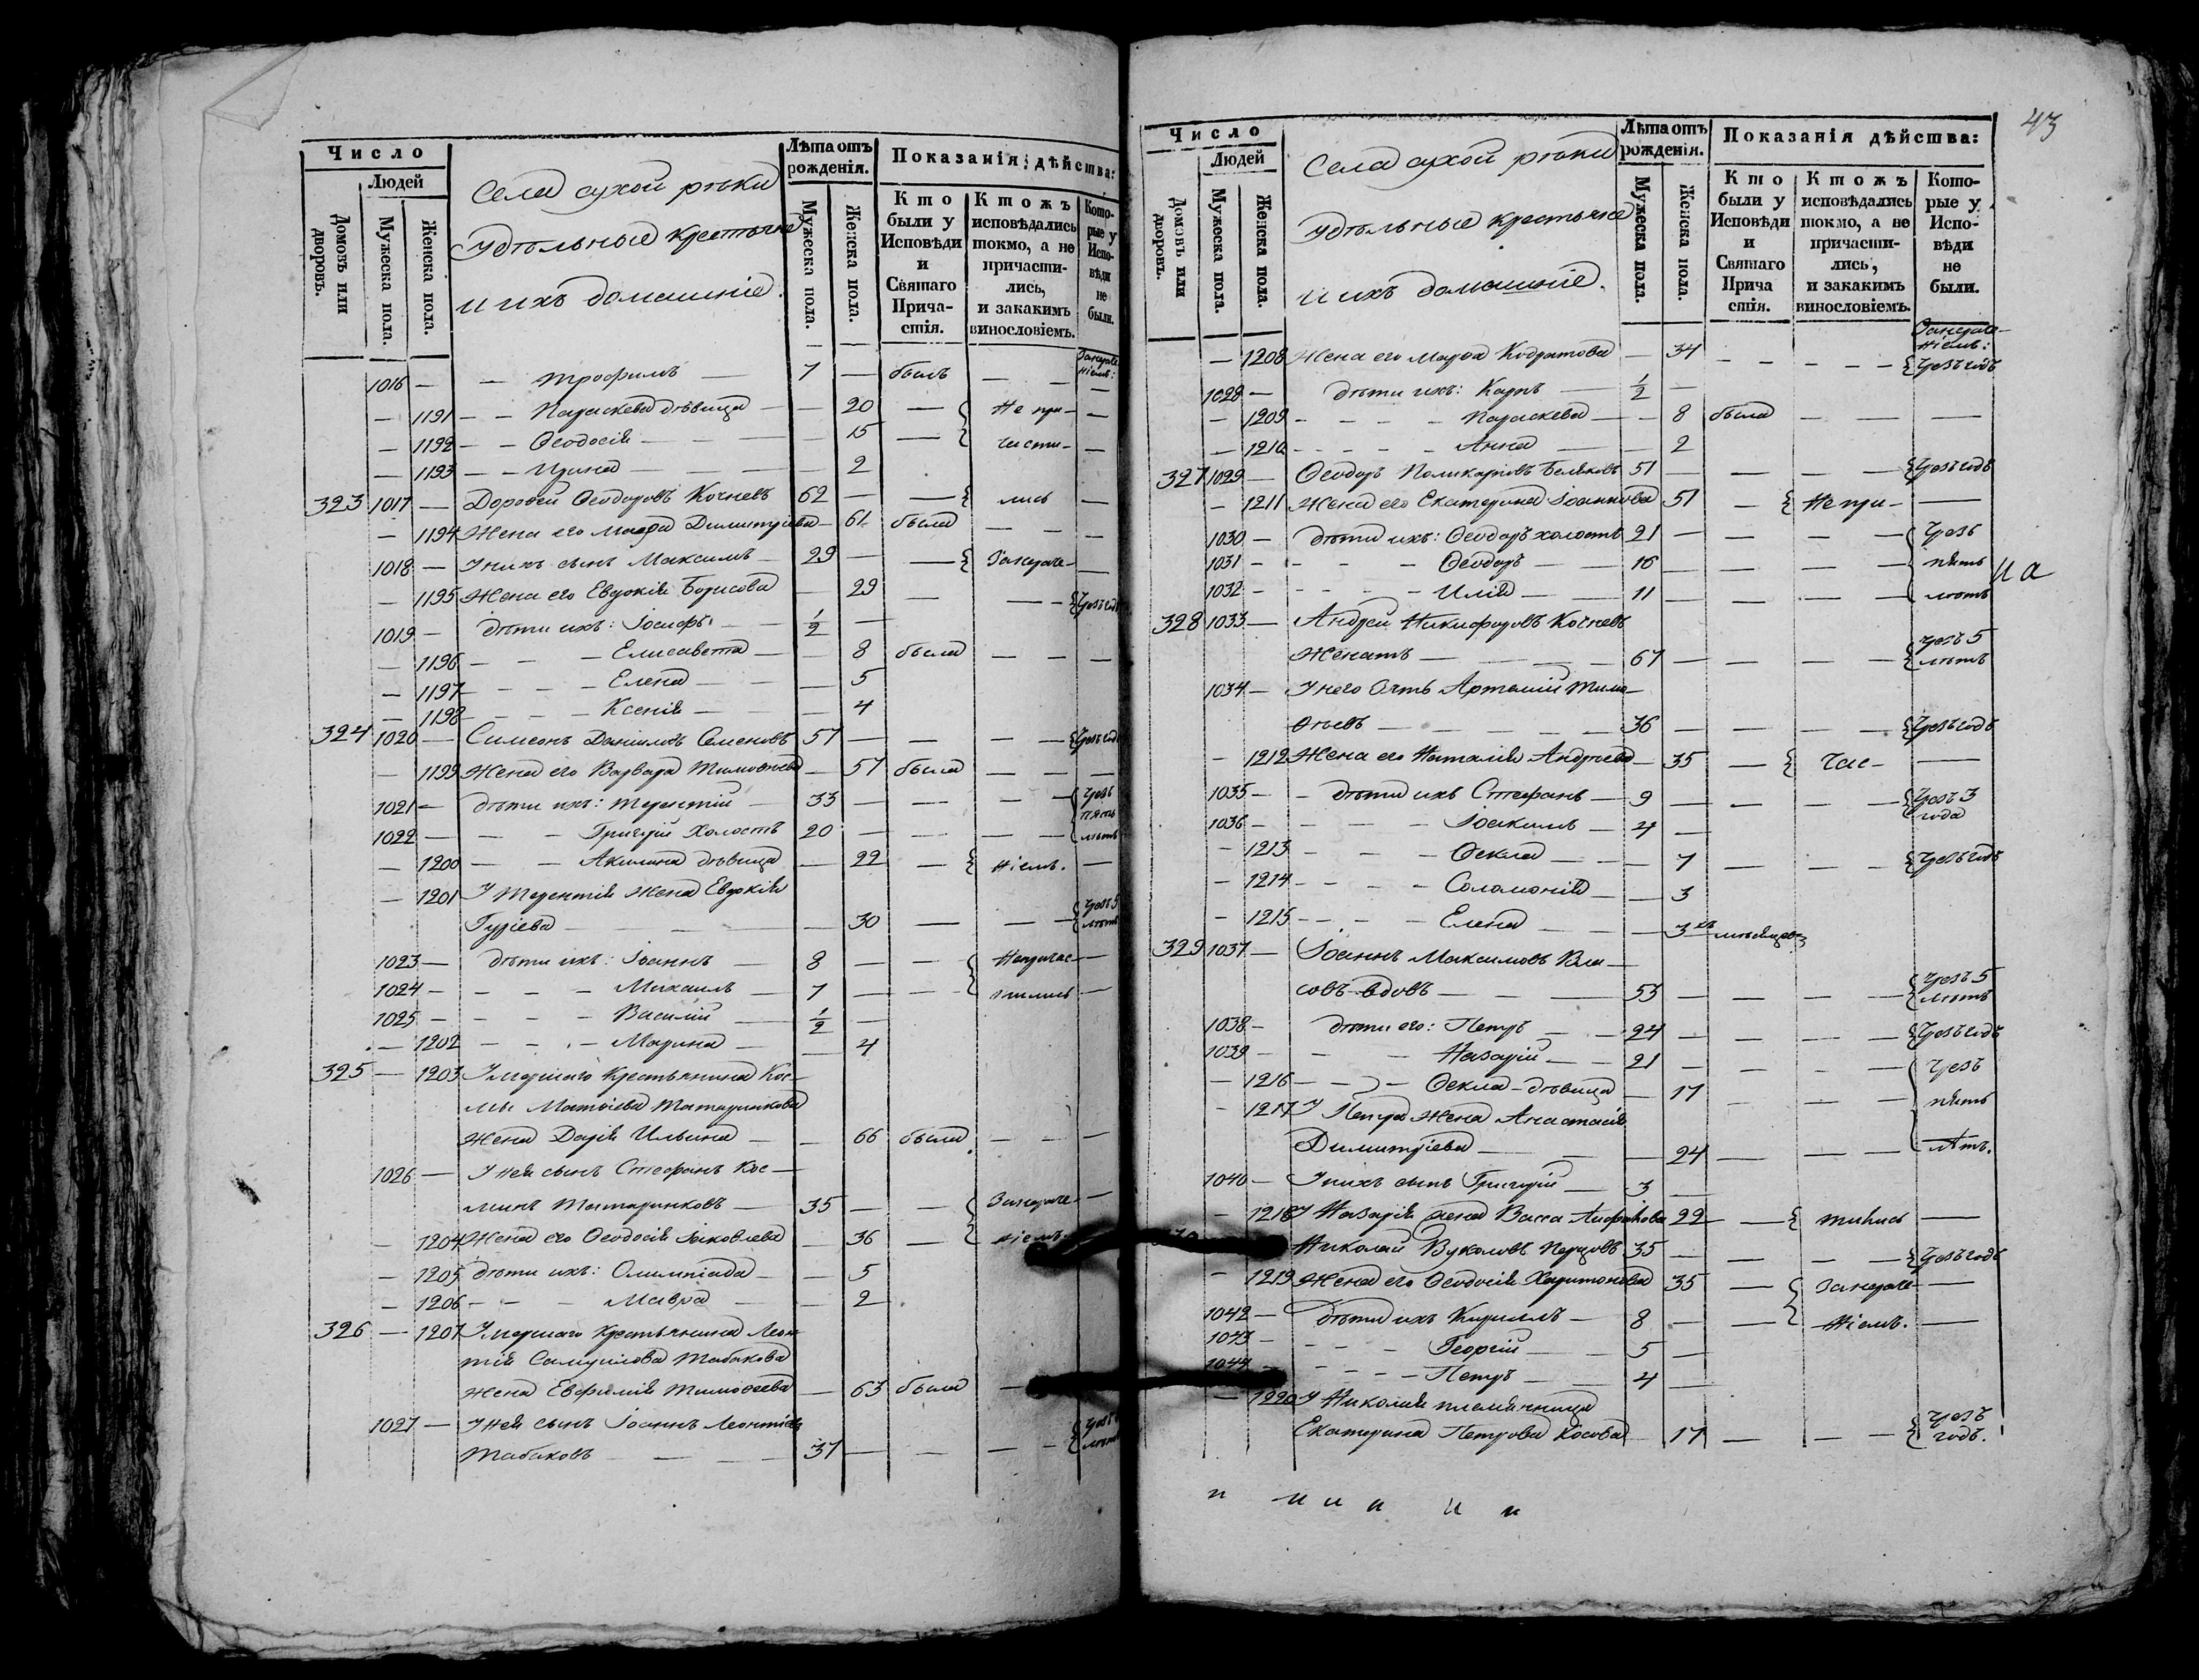 Число
Людей
Домовъ или дворовъ.
Мужеска пола.
Женска пола.
Села сухой рѣки
Удѣльные крестьяне
и ихъ домашніе.
Лѣта отъ рожденія.
Мужеска пола.
Женска пола.
Показанія дѣйства:
Кто были у Исповѣди и Святаго Причастія.
Ктожъ исповѣдались токмо, а не причастились, и закакимъ винословіемъ.
Которые у Исповѣди не были.
1016 — — Трофимъ — 7 — былъ — —
— 1191 — — Параскева дѣвица — — 20 — { Не при- —
— 1192 — — Ѳеодосія — — — 15 — { части- —
— 1193 — — Ирина — — — 2
323 1017 — Дороѳей Ѳеодоровъ Кочневъ 62 — — { лись —
— 1194 Жена его Димитріева — 61 была — — —
1018 — У нихъ сынъ Максимъ — 29 — — { Занераче- —
— 1195 Жена его Евдокія Борисова — 29 — — — {Чрезъ годъ
1019 — дѣти ихъ: Іосифъ — 1/2 —
— 1196 — — — Елисавета — — 8 была — — —
— 1197 — — — Елена — — — 5
— 1198 — — — Ксенія — — — 4
324 1020 — Симеонъ Даніиловъ Семеновъ 57 — — — — {Чрезъ годъ
— 1199 Жена его Варвара Тимоѳеева — 57 была — — —
1021 — дѣти ихъ: Терентій — 33 — — — — { Чрезъ
пять
1022 — — — Григорій Холостъ 20 — — — — лѣтъ
— 1200 — — Акилина дѣвица — 22 — { ніемъ. —
— 1201 У Терентія жена Евдокія
Гуріева — — — — 30 — — — { Чрезъ 5 лѣтъ
1023 — дѣти ихъ: Іоаннъ — 8 — — { Непричас- —
1024 — — — — Михаилъ — 7 — — тились —
1025 — — — — Василій — 1/2 —
— 1202 — — — Марина — — 4
325 — 1203 Умершаго крестьянина Кос-
мы Матѳіева Татаринкова
жена Дарія Ильина — — 66 была — — —
1026 — У нея сынъ Стефанъ Кос-
минъ Татаринковъ — 35 — — { Занераче- —
— 1204 Жена его Ѳеодосія Іаковлева — 36 — { ніемъ.
— 1205 дѣти ихъ: Олимпіада — — 5
— 1206 — — — Мавра — — 2
326 — 1207 Умершаго крестьянина Леон-
тія Самуилова Табакова
жена Евфимія Тимоѳеева — 63 была —
1027 — У нея сынъ Іоаннъ Леонтіевъ
Табаковъ — — — 37 — — — —
43
Число
Людей
Домовъ или дворовъ.
Мужеска пола.
Женска пола.
Села сухой рѣки
Удѣльные крестьяне
и ихъ домашніе.
Лѣта отъ рожденія.
Мужеска пола.
Женска пола.
Показанія дѣйства:
Кто были у Исповѣди и Святаго Причастія.
Ктожъ исповѣдались токмо, а не причастились, и закакимъ винословіемъ.
Которые у Исповѣди не были.
Занераче-
ніемъ:
— 1208 Жена его Марѳа Кодратова — 34 — — — — {Чрезъ годъ
1028 — дѣти ихъ: Карпъ — 1/2 —
— 1209 — — — — Параскева — — 8 была — — —
— 1210 — — — — Анна — — 2
327 1029 — Ѳеодоръ Поликарповъ Беляковъ 51 — — — — {Чрезъ годъ
— 1211 Жена его Екатерина Іоаннова 51 — { Не при- —
1030 — дѣти ихъ: Ѳеодоръ холостъ 21 — — — — { Чрезъ
1031 — — — — Ѳеодоръ — — 16 — — — — пять
1032 — — — — Илія — — 11 — — — — лѣтъ
и а
328 1033 — Андрей Никифоровъ Кочневъ
Женатъ — — — — 67 — — — — { Чрезъ 5 лѣтъ
1034 — У него зять Артемій Тимо-
ѳеевъ — — — — 36 — — — — {Чрезъ годъ
— 1212 Жена его Наталія Андреева — 35 — { час- —
1035 — — дѣти ихъ Стефанъ — 9 — — — — {Чрезъ 3 года
1036 — — — — Іоакимъ — 4 —
— 1213 — — — — Ѳекла — — 7 — — — {Чрезъ годъ
— 1214 — — — — Соломонія — — 3
— 1215 — — — — Елена — — — 3хъ мѣсяцовъ
329 1037 — Іоаннъ Максимовъ Вла-
совъ вдовъ — — — 53 — — — — { Чрезъ 5 лѣтъ
1038 — дѣти его: Петръ — — 24 — — — — {Чрезъ годъ
1039 — — — Назарій — — 21 — — — — { Чрезъ
— 1216 — — — Ѳекла дѣвица — 17 — — — пять
— 1217 У Петра жена Анастасія
Димитріева — — — 24 — — — лѣтъ.
1040 — У нихъ сынъ Григорій — 3 —
— 1218 У Назарія жена Васса 22 — { тились —
Николай Вуколовъ Перцовъ 35 — — — — {Чрезъ годъ
— 1219 Жена его Ѳеодосія Харитонова 35 — { Занераче- —
1042 — дѣти ихъ Кириллъ — 8 — — ніемъ. —
1043 — — — — Георгій — — 5 —
1044 — — — — Петръ — — 4 —
— 1220 У Николая племянница
Екатерина Петрова Косова — 17 — — — { Чрезъ годъ.